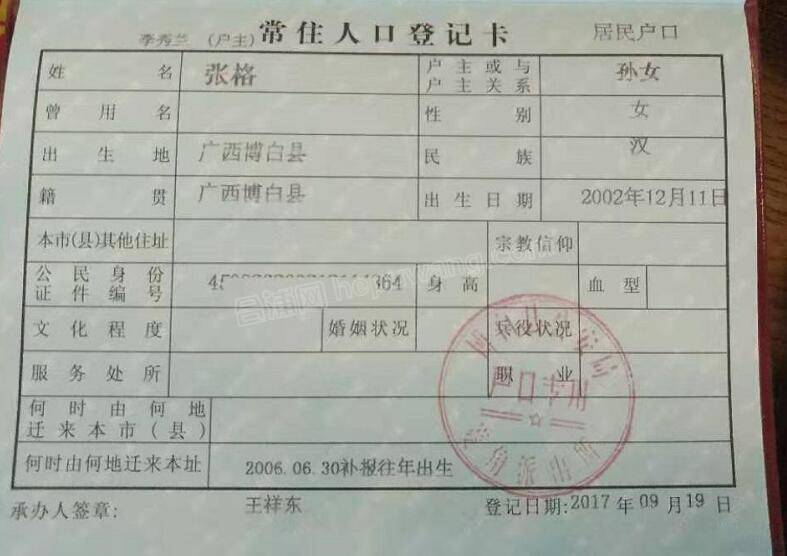 李秀兰 (户主) 常住人口登记卡 居民户口
姓名 张榕 户主或与户主关系 孙女
曾用名 性别 女
出生地 广西博白县 民族 汉
籍贯 广西博白县 出生日期 2002年12月11日
本市(县)其他住址 宗教信仰
公民身份证件编号 身高 血型
文化程度 婚姻状况 兵役状况
服务处所 职业
何时由何地迁来本市(县)
何时由何地迁来本址 2006.06.30补报往年出生
户口专用
承办人签章: 王祥东 登记日期:2017年09月19日